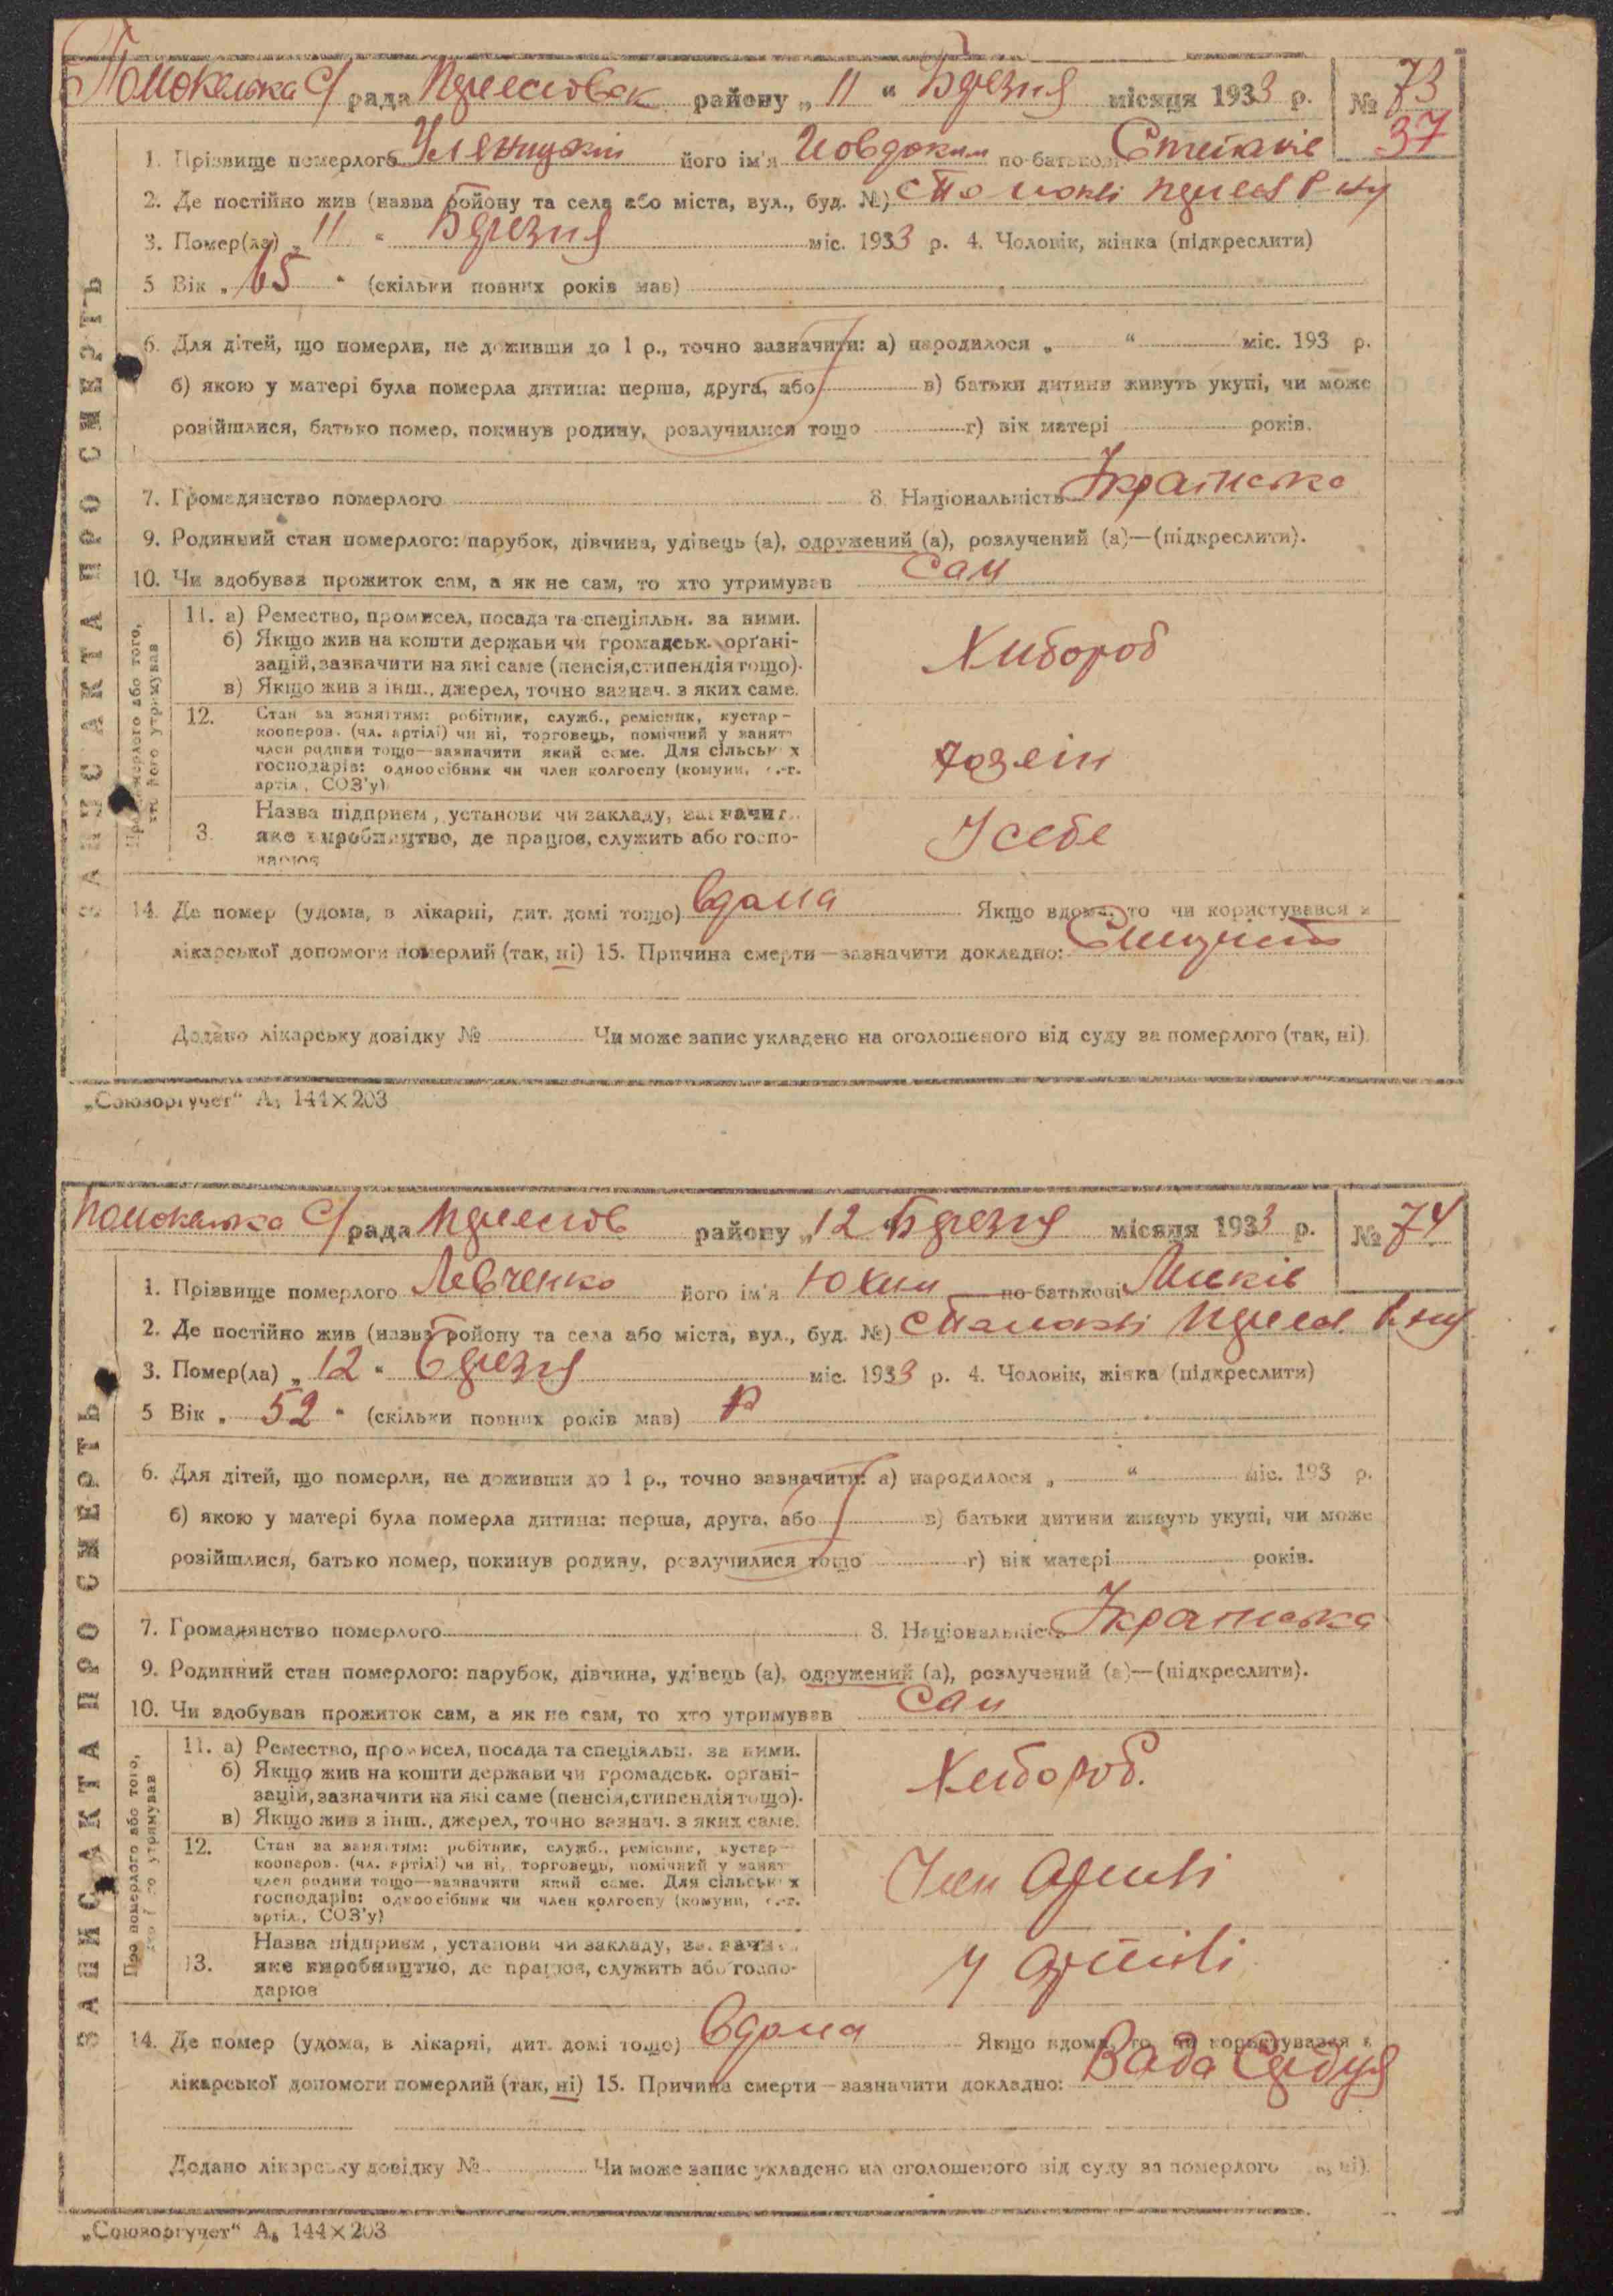 рада району „ 11 “ Березня місяця 1933 р. № 73
37
1. Прізвище померлого його ім'я Йовдоким по-батькові Степанів
2. Де постійно жив (назва ройону та села або міста, вул., буд. №) с
3. Помер(ла) „ 11 “ Березня міс. 1933 р. 4. Чоловік, жінка (підкреслити)
5 Вік „ 65 “ (скільки повних років мав)
6. Для дітей, що померли, не доживши до 1 р., точно зазначити: а) народилося „ “ міс. 193 р.
б) якою у матері була померла дитина: перша, друга, або в) батьки дитини живуть укупі, чи може
розійшлися, батько помер, покинув родину, розлучилися тощо г) вік матері років.
7. Громадянство померлого 8. Національність Українська
9. Родинний стан померлого: парубок, дівчина, удівець (а), одружений (а), розлучений (а)—(підкреслити).
10. Чи здобував прожиток сам, а як не сам, то хто утримував Сам
ЗАПИС АКТА ПРО СМЕРТЬ
Про померлого або того, хто його утримував
11. а) Ремество, промисел, посада та спеціяльн. за ними.
б) Якщо жив на кошти держави чи громадськ. орґані-
зацій, зазначити на які саме (пенсія, стипендія тощо).
в) Якщо жив з інш., джерел, точно зазнач. з яких саме.
Хлібороб
12. Стан за заняттям: робітник, служб., ремісник, кустар-
кооперов. (чл. артілі) чи ні, торговець, помічний у занят.
член родини тощо—зазначити який саме. Для сільських
господарів: одноосібник чи член колгоспу (комуни, с.-г.
артіл., СОЗ'у)
хозеін
3. Назва підприєм, установи чи закладу, зазначит.
яке виробництво, де працюв, служить або госпо-
дарюв
У себе
14. Де помер (удома, в лікарні, дит. домі тощо) вдома Якщо вдома, то чи користувався з
лікарської допомоги померлий (так, ні) 15. Причина смерти—зазначити докладно:
Додано лікарську довідку № Чи може запис укладено на оголошеного від суду за померлого (так, ні).
„Союзоргучет“ А₅ 144×203
рада району „ 12 “ Березня місяця 1933 р. № 74
1. Прізвище померлого Левченко його ім'я Юхим по-батькові
2. Де постійно жив (назва ройону та села або міста, вул., буд. №) с
3. Помер(ла) „ 12 “ Березня міс. 1933 р. 4. Чоловік, жінка (підкреслити)
5 Вік „ 52 “ (скільки повних років мав) р
6. Для дітей, що померли, не доживши до 1 р., точно зазначити: а) народилося „ “ міс. 193 р.
б) якою у матері була померла дитина: перша, друга, або в) батьки дитини живуть укупі, чи може
розійшлися, батько помер, покинув родину, розлучилися тощо г) вік матері років.
7. Громадянство померлого 8. Національність Українська
9. Родинний стан померлого: парубок, дівчина, удівець (а), одружений (а), розлучений (а)—(підкреслити).
10. Чи здобував прожиток сам, а як не сам, то хто утримував Сам
ЗАПИС АКТА ПРО СМЕРТЬ
Про померлого або того, хто його утримував
11. а) Ремество, промисел, посада та спеціяльн. за ними.
б) Якщо жив на кошти держави чи громадськ. орґані-
зацій, зазначити на які саме (пенсія, стипендія тощо).
в) Якщо жив з інш., джерел, точно зазнач. з яких саме.
Хлібороб.
12. Стан за заняттям: робітник, служб., ремісник, кустар-
кооперов. (чл. артілі) чи ні, торговець, помічний у занят.
член родини тощо—зазначити який саме. Для сільських
господарів: одноосібник чи член колгоспу (комуни, с.-г.
артіл., СОЗ'у)
Член Артілі
13. Назва підприєм, установи чи закладу, зазначит.
яке виробництво, де працюв, служить або госпо-
дарюв
У артілі
14. Де помер (удома, в лікарні, дит. домі тощо) вдома Якщо вдома, то чи користувався з
лікарської допомоги померлий (так, ні) 15. Причина смерти—зазначити докладно: Вада Сердця
Додано лікарську довідку № Чи може запис укладено на оголошеного від суду за померлого ні).
„Союзоргучет“ А₅ 144×203